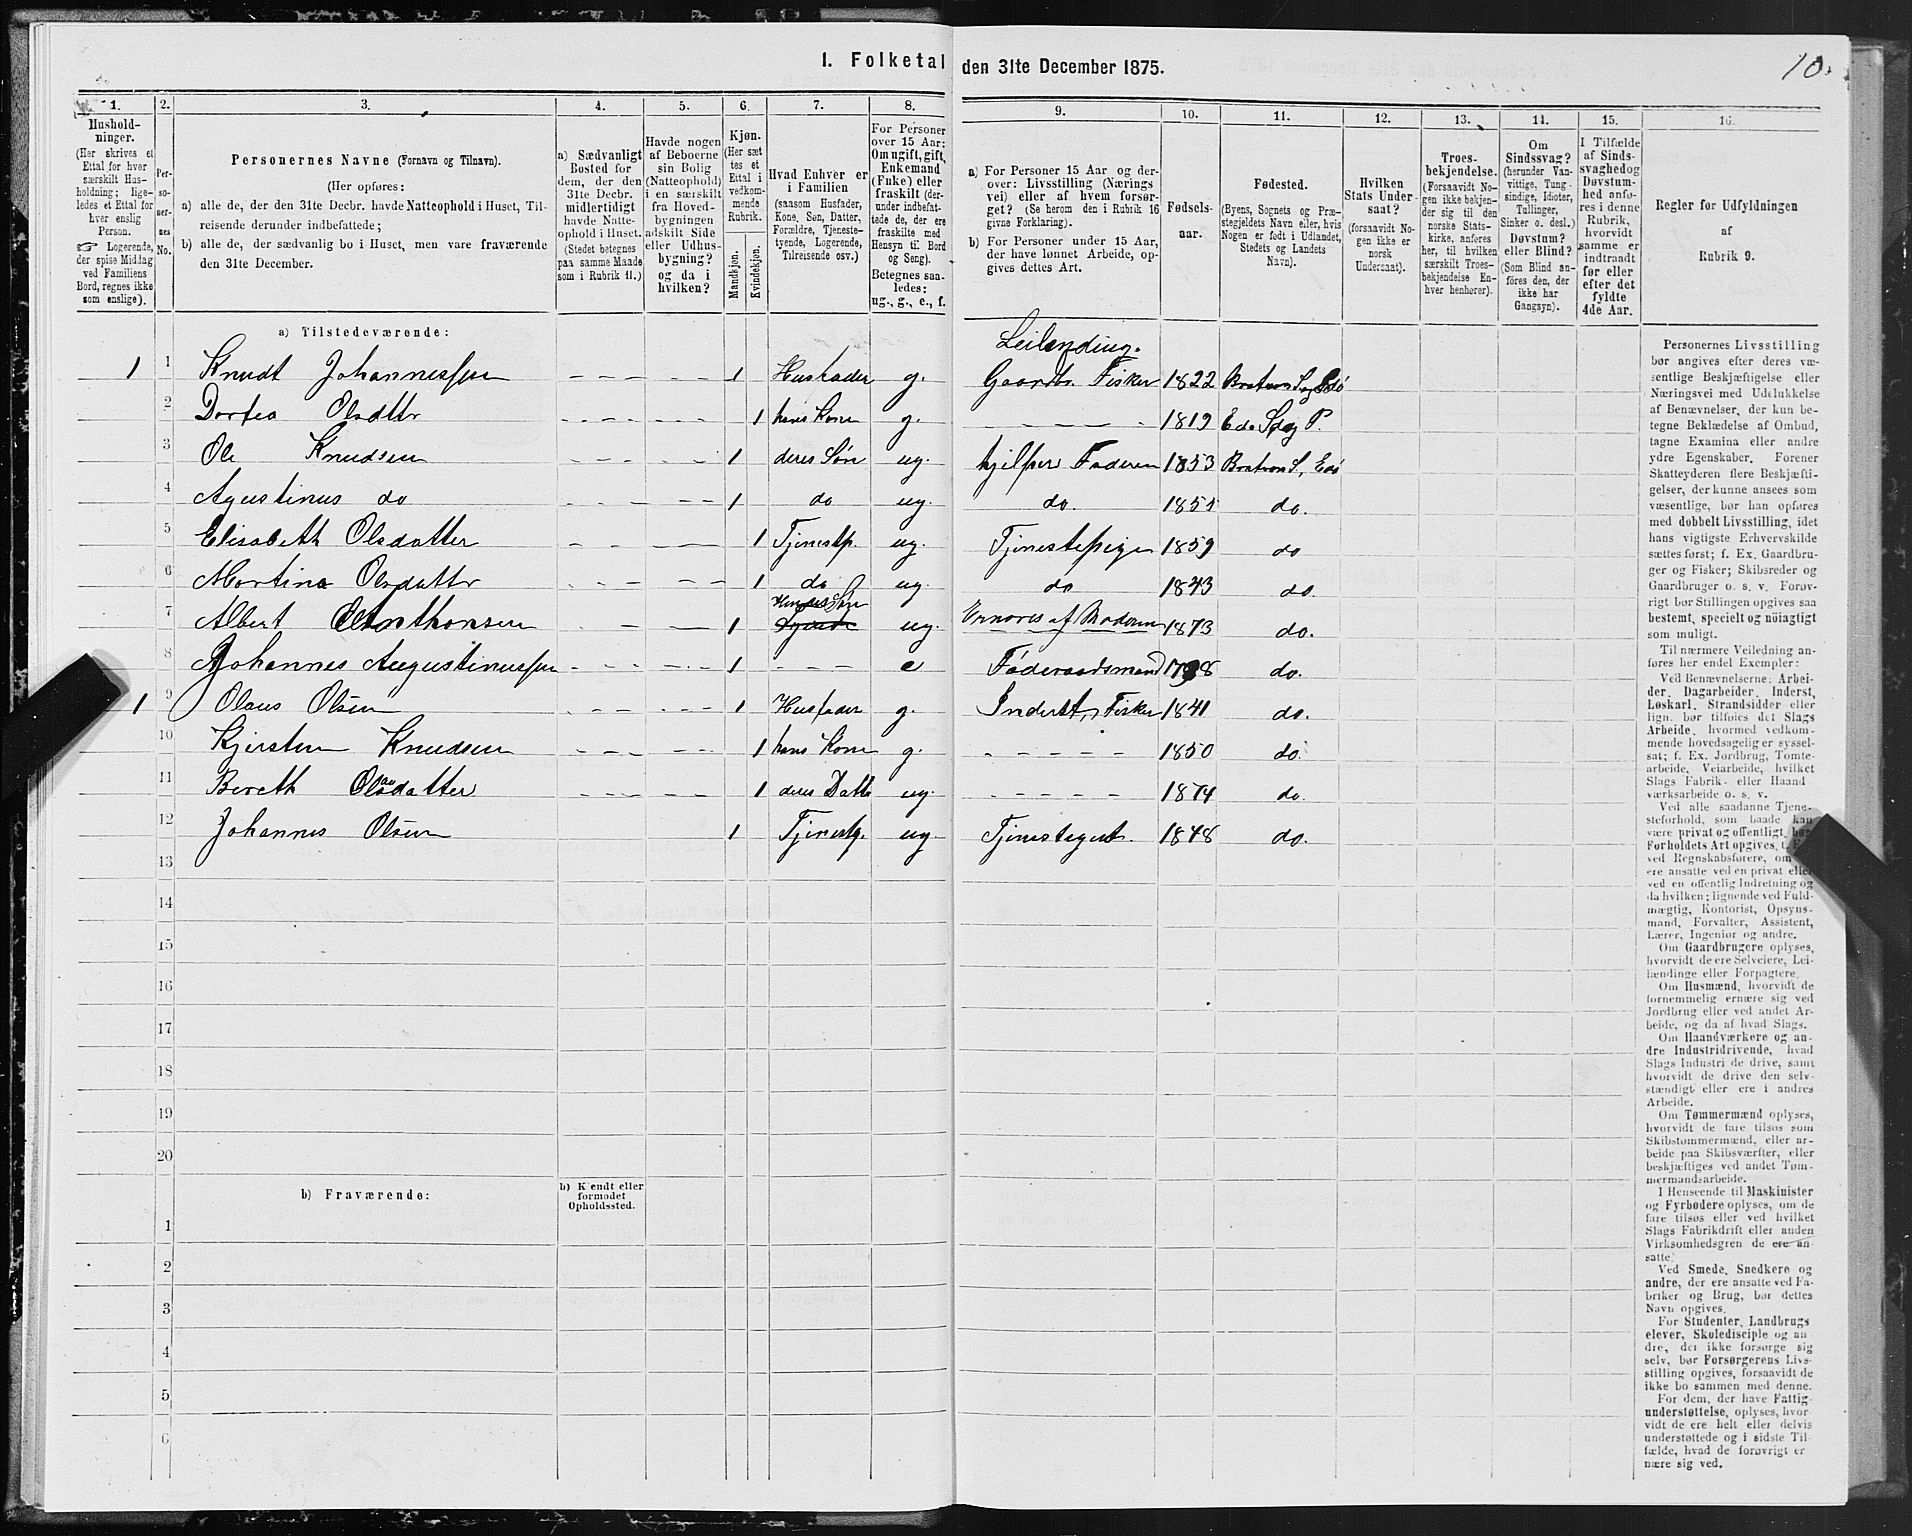 1. Folketal den 31te December 1875.
10.
1.
2.
3.
4.
5.
6.
7.
8.
9.
10.
11.
12.
13.
14.
15.
16.
Hushold-
ninger.
(Her skrives et
Ettal for hver
særskilt Hus-
holdning; lige-
ledes et Ettal for
hver enslig
Person.
☞ Logerende,
der spise Middag
ved Familiens
Bord, regnes ikke
som enslige).
Per-
so-
ner-
nes
No.
Personernes Navne (Fornavn og Tilnavn).
(Her opføres:
a) alle de, der den 31te Decbr. havde Natteophold i Huset, Til-
reisende derunder indbefattede;
b) alle de, der sædvanlig bo i Huset, men vare fraværende
den 31te December.
a) Sædvanligt
Bosted for
dem, der den
31te Decbr.
midlertidigt
havde Natte-
ophold i Huset.
(Stedet betegnes
paa samme Maade
som i Rubrik 11.)
Havde nogen
af Beboerne
sin Bolig
(Natteophold)
i en særskilt
fra Hoved-
bygningen
adskilt Side
eller Udhus-
bygning?
og da i
hvilken?
Kjøn.
(Her sæt
tes et
Ettal i
vedkom-
mende
Rubrik.
Mandkjøn.
Kvindekjøn.
Hvad Enhver er
i Familien
(saasom Husfader,
Kone, Søn, Datter,
Forældre, Tjeneste-
tyende, Logerende,
Tilreisende osv.)
For Personer
over 15 Aar:
Om ugift, gift,
Enkemand
(Enke) eller
fraskilt (der-
under indbefat-
tede de, der ere
fraskilte med
Hensyn til Bord
og Seng).
Betegnes saa-
ledes:
ug., g., e., f.
a) For Personer 15 Aar og der-
over: Livsstilling (Nærings
vei) eller af hvem forsør-
get? (Se herom den i Rubrik 16
givne Forklaring).
b) For Personer under 15 Aar,
der have lønnet Arbeide, op-
gives dettes Art.
Fødsels-
aar.
Fødested.
(Byens, Sognets og Præ-
stegjeldets Navn eller, hvis
Nogen er født i Udlandet,
Stedets og Landets
Navn).
Hvilken
Stats Under-
saat?
(forsaavidt No-
gen ikke er
norsk
Undersaat).
Troes-
bekjendelse.
(Forsaavidt No-
gen ikke bekjen-
der sig til den
norske Stats-
kirke, anføres
her, til hvilken
særskilt Troes-
bekjendelse En-
hver henhører).
Om
Sindssvag?
(herunder Van-
vittige, Tung-
sindige, Idioter,
Tullinger,
Sinker o. desl.)
Døvstum?
eller Blind?
(Som Blind an-
føres den, der
ikke har
Gangsyn).
I Tilfælde
af Sinds-
svaghed og
Døvstum-
hed anfø-
res i denne
Rubrik,
hvorvidt
samme er
indtraadt
før eller
efter det
fyldte
4de Aar.
Regler for Udfyldningen
af
Rubrik 9.
a) Tilstedeværende:
Leilending.
1 1 Knudt Johannessen - - - - - - 1 Husfader g. Gaardbr. Fisker 1822
2 Dortea Olsdttr - - - - - - 1 hans Kone g. - - - - 1819 Edø S og P.
3 Ole Knudsen - - - - - - 1 deres Søn ug. hjelper Faderen 1853
4 Agustinus do - - - - - - 1 do ug. do. do.
5 Elisabeth Olsdatter - - - - - - 1 Tjenestp. ug. Tjenestepige 1859 do
6 Martina Olsdattr - - - - - - 1 do ug. do 1843 do.
Hendes Søn
7 Albert - - - - 1 ug. Ernæres af Moderen 1873 do.
8 Johannes Augustinussen - - - - - - 1 - - - e Føderaadsmand do.
1 9 Olaus Olsen - - - - - - 1 Husfader g. Inderst, Fisker 1841 do.
10 Kjersten Knudsen - - - - - - 1 hans Kone g. - - - - - 1850 do.
11 Bereth Olsdatter - - - - - - 1 deres Dattr ug. - - - - - 1874 do.
12 Johannes Olsen 1 Tjenestg. ug. Tjenestegut. 1848 do.
13
14
15
16
17
18
19
20
b) Fraværende:
b) Kjendt eller
formodet
Opholdssted.
1
2
3
4
5
6
Personernes Livsstilling
bør angives efter deres væ-
sentlige Beskjæftigelse eller
Næringsvei med Udelukkelse
af Benævnelser, der kun be-
tegne Beklædelse af Ombud,
tagne Examina eller andre
ydre Egenskaber. Forener
Skatteyderen flere Beskjæfti-
gelser, der kunne ansees som
væsentlige, bør han opføres
med dobbelt Livsstilling, idet
hans vigtigste Erhvervskilde
sættes først; f. Ex. Gaardbru-
ger og Fisker; Skibsreder og
Gaardbruger o. s. v. Forøv-
rigt bør Stillingen opgives saa
bestemt, specielt og nøiagtigt
som muligt.
Til nærmere Veiledning an-
føres her endel Exempler:
Ved Benævnelserne: Arbei-
der, Dagarbeider, Inderst,
Løskarl, Strandsidder eller
lign. bør tilføies det Slags
Arbeide, hvormed vedkom-
mende hovedsagelig er syssel-
sat; f. Ex. Jordbrug, Tomte-
arbeide, Veiarbeide, hvilket
Slags Fabrik- eller Haand
værksarbeide o. s. v.
Ved alle saadanne Tjene-
steforhold, som baade kan
være privat og offentligt, bør
Forholdets Art opgives,
ved Regnskabsførere, om
ere ansatte ved en privat eller
ved en offentlig Indretning og
da hvilken; lignende ved Fuld-
mægtig, Kontorist, Opsyns-
mand, Forvalter, Assistent,
Lærer, Ingeniør og andre.
Om Gaardbrugere oplyses,
hvorvidt de ere Selveiere, Lei-
lændinge eller Forpagtere.
Om Husmænd, hvorvidt de
fornemmelig ernære sig ved
Jordbrug eller ved andet Ar-
beide, og da af hvad Slags.
Om Haandværkere og an-
dre Industridrivende, hvad
Slags Industri de drive, samt
hvorvidt de drive den selv-
stændigt eller ere i andres
Arbeide.
Om Tømmermænd oplyses,
hvorvidt de fare tilsøs som
Skibstømmermænd, eller ar-
beide paa Skibsværfter, eller
beskjæftiges ved andet Tøm-
mermandsarbeide.
I Henseende til Maskinister
og Fyrbødere oplyses, om de
fare tilsøs eller ved hvilket
Slags Fabrikdrift eller anden
Virksomhedsgren de ere an-
satte.
Ved Smede, Snedkere og
andre, der ere ansatte ved Fa-
briker og Brug, bør dettes
Navn opgives.
For Studenter, Landbrugs
elever, Skoledisciple og an-
dre, der ikke forsørge sig
selv, bør Forsørgerens Livs-
stilling opgives, forsaavidt de
ikke bo sammen med denne.
For dem, der have Fattig-
understøttelse, oplyses, hvor-
vidt de ere helt eller delvis
understøttede og i sidste Til-
fælde, hvad de forøvrigt er
nære sig ved.